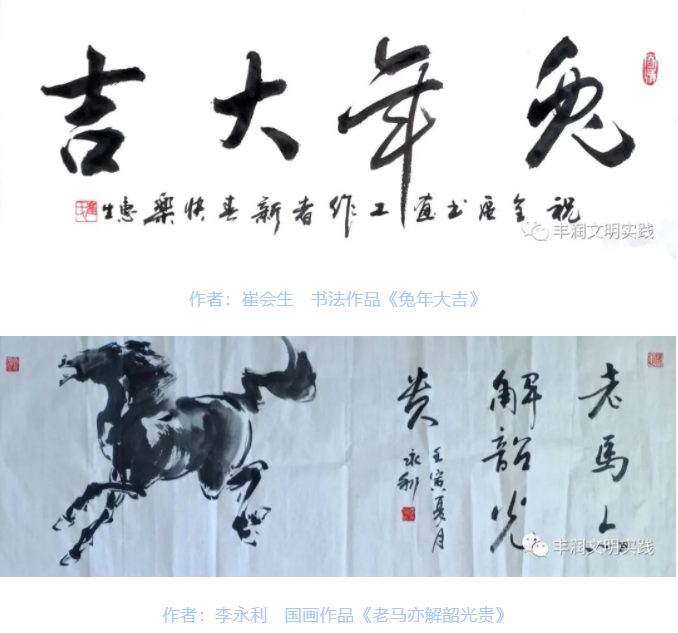 兔年大吉
祝全区书画工作者新春快乐惠生
丰润文明实践
作者：崔会生 书法作品《兔年大吉》
老马亦
解韶光
贵
壬寅夏月
永利
丰润文明实践
作者：李永利 国画作品《老马亦解韶光贵》